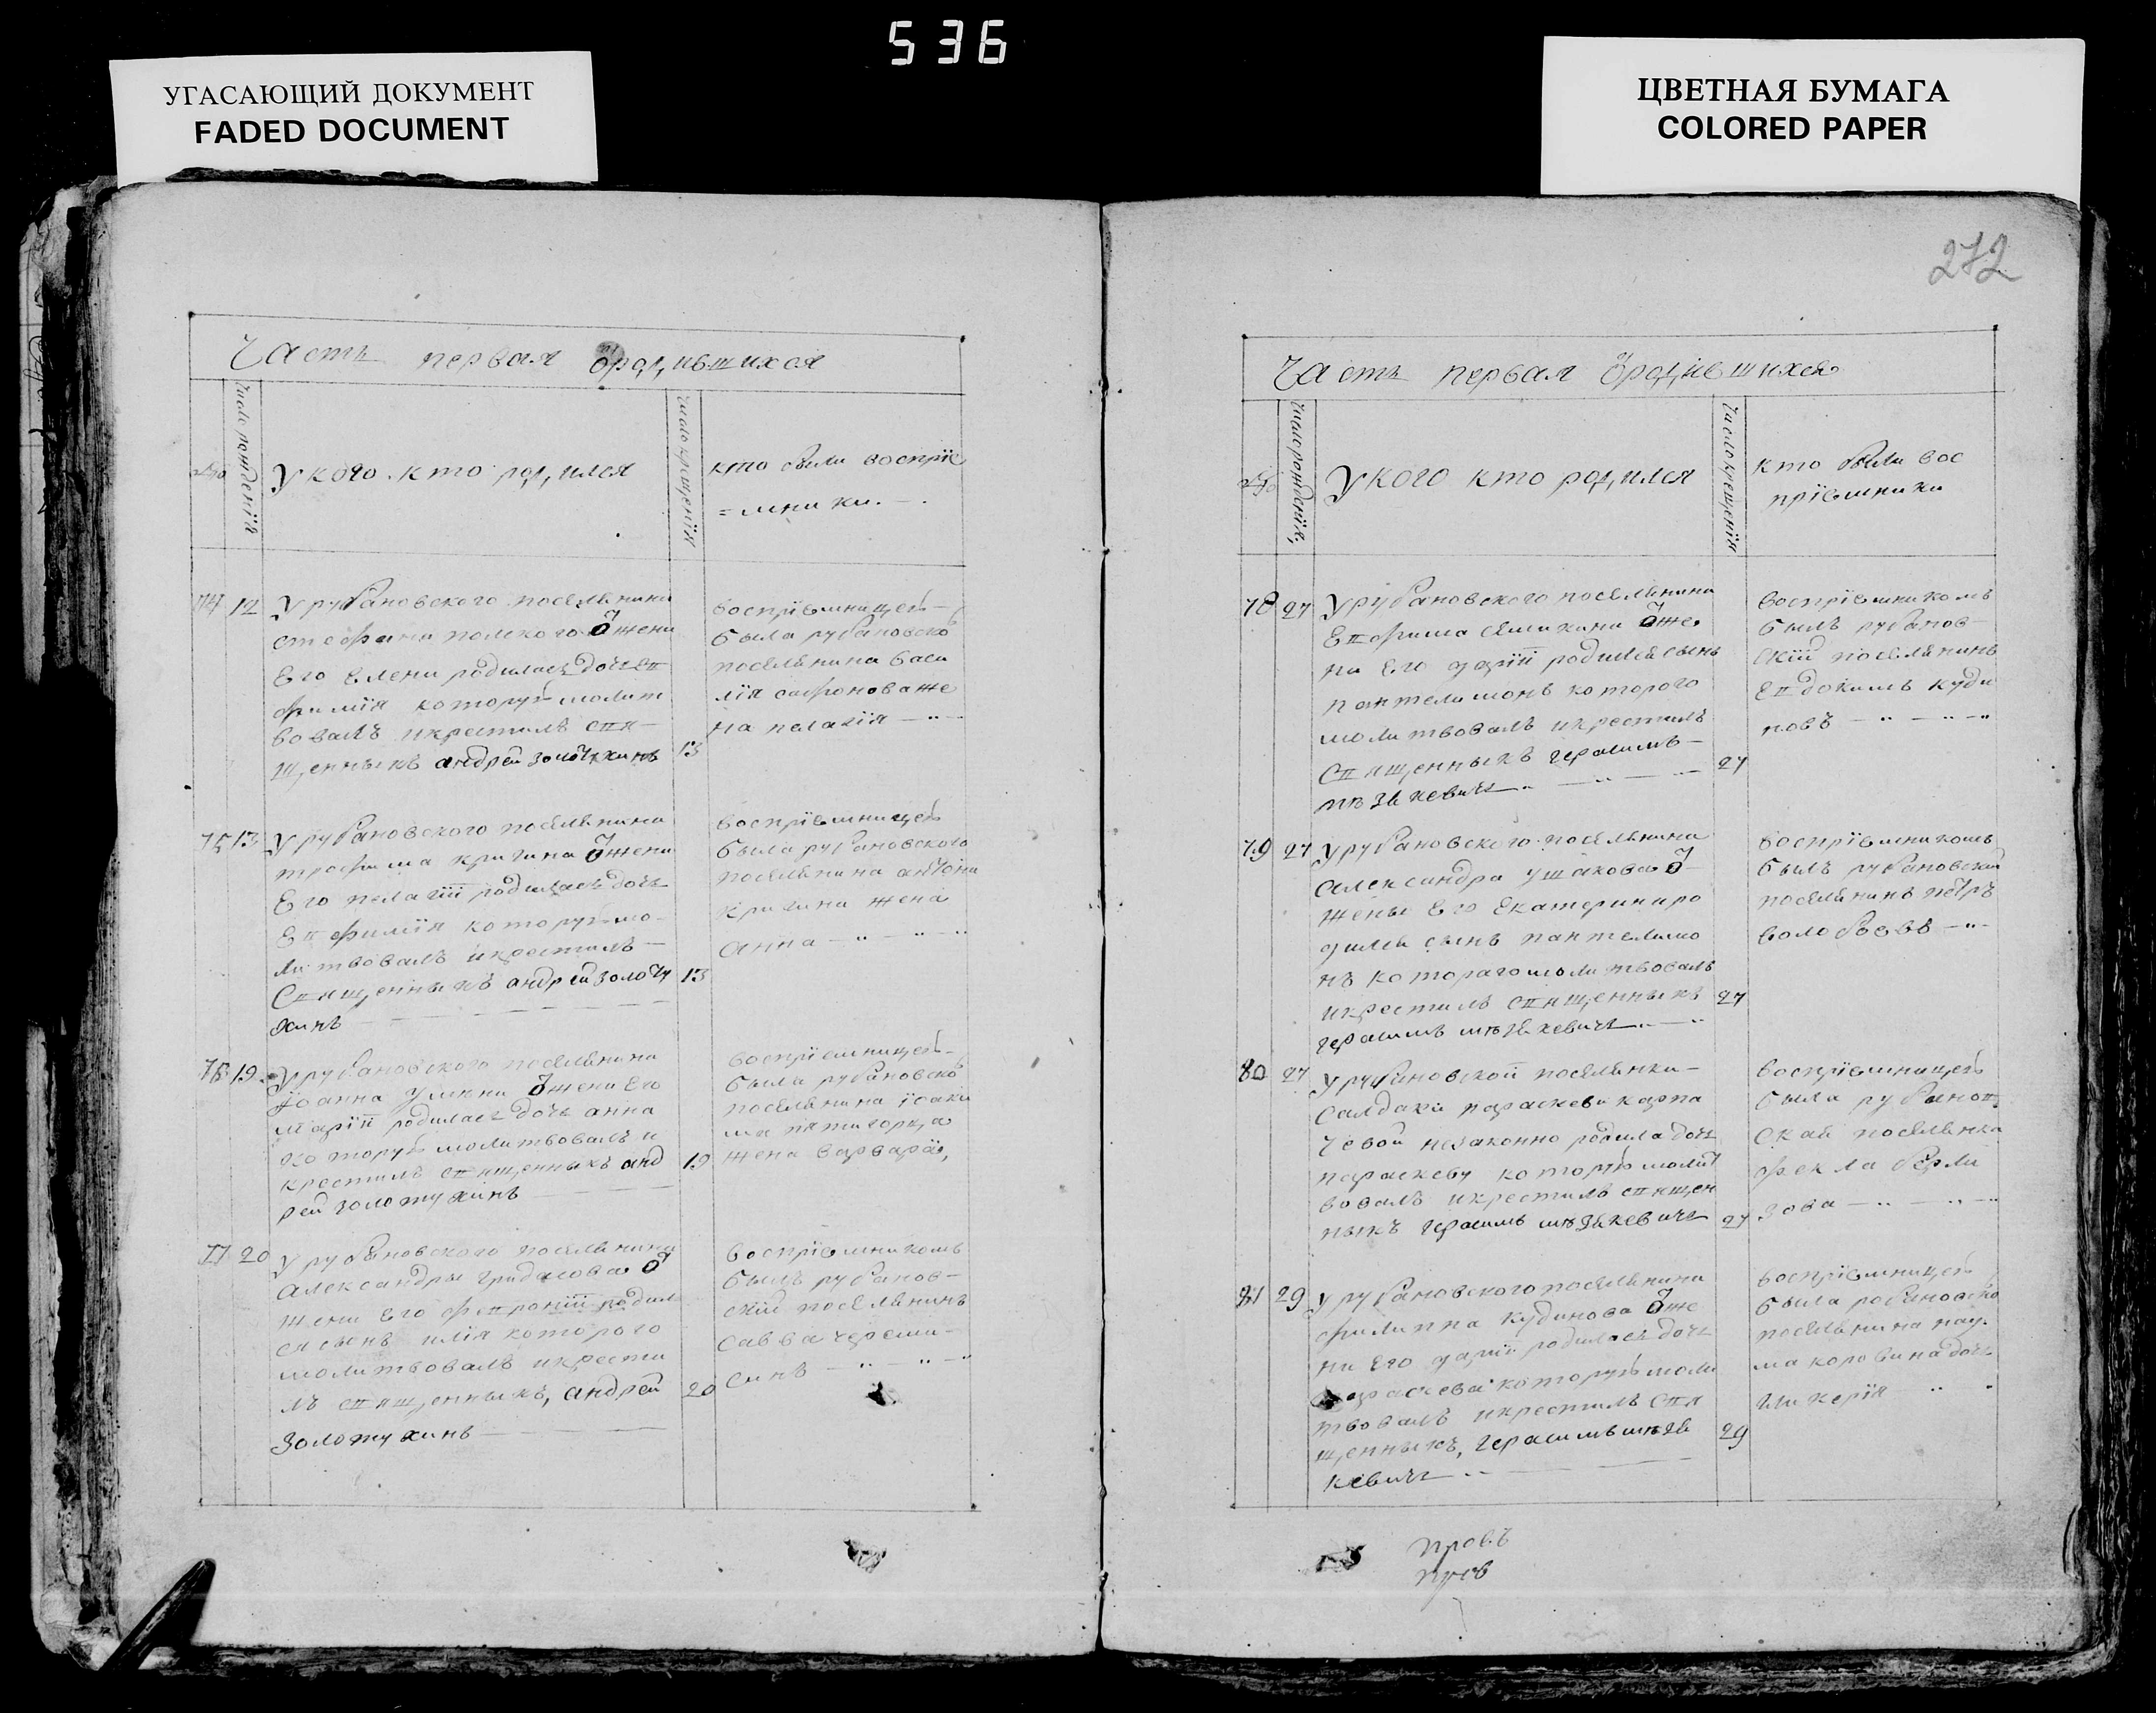 536
УГАСАЮЩИЙ ДОКУМЕНТ
FADED DOCUMENT
ЦВЕТНАЯ БУМАГА
COLORED PAPER
272
Часть первая ѿродившихся
№
Число рождения
У кого кто родился
Число крещенїя
кто были воспрїе
=мники. —.
74 12
Урубановского поселянина
стефана ѿжени
Его Елени родилась дочь Еѵ
фимїя которую молит
вовалъ икрестилъ свя—
щенникъ андрей золотухинъ
13
воспрїемницею—
была рубановско
поселянина васи
лїя сафонова же
на пелагїя — ,, —
75 13
Урубановского поселянина
трофима кригина ѿжени
Его пелагїи родилась дочь
Еѵфимїя которую мо-
литвовалъ икрестилъ—
Священникъ андрей золоту
хинъ
13
воспрїемницею
была рубановского
поселянина антона
кригина жена
анна — ,, — ,, — ,,
76 19
Урубановского поселянина
їоанна ѿжени Его
марїи родилась дочь анна
которую молитвовалъ и
крестилъ священникъ анд
рей золотухинъ
19
воспрїемницею—
была рубановско
поселянина їоаки
ма пятигорца
жена варвара,
77 20
Урубановского поселянина
Александры гридасова ѿ
жени Его феѵронїи родил
ся сынъ илїя которого
молитвовалъ икрести
лъ священникъ, андрей
Золотухинъ
20
воспрїемникомъ
былъ рубанов—
скїй поселянинъ
савва череми—
синъ — ,, — ,, — ,,
Часть первая ѿродившихся
№
Число рожденїя,
У кого кто родился
Число крещенїя
кто были вос
прїемники
78 27
Урубановского поселянина
Еѵфима ѿже
ни Его дарїи родился сынъ
пантелимонъ которого
молитвовалъ икрестилъ
Священникъ герасимъ—
27
воспрїемникомъ
былъ рубанов—
скїй поселянинъ
Еѵдокимъ куди
новъ — ,, — ,, — ,,
79 27
Урубановского поселянина
Александра ушакова ѿ
жены Его Екатерини ро
дился сынъ пантелимо
нъ которагомолитвовалъ
икрестилъ священникъ
27
воспрїемникомъ
былъ рубановскїй
поселянинъ петръ
волобоевъ — ,, —
80 27
Урубановской поселянки—
Салдаки параскеви карпа
чевой незаконно родила дочь
параскеву которую молит
вовалъ икрестилъ священ
27
воспрїемницею
была рубанов
ская поселянка
фекла берли
зова — ,, — ,, — ,,
81 29
Урубановского поселянина
филиппа кудинова ѿже
ни Его дарїи родилась дочь
параскева которую моли
твовалъ икрестилъ свя
29
воспрїемницею
была рубановско
поселянина нау-
ма коровина дочь
гликерїя ,, ,,